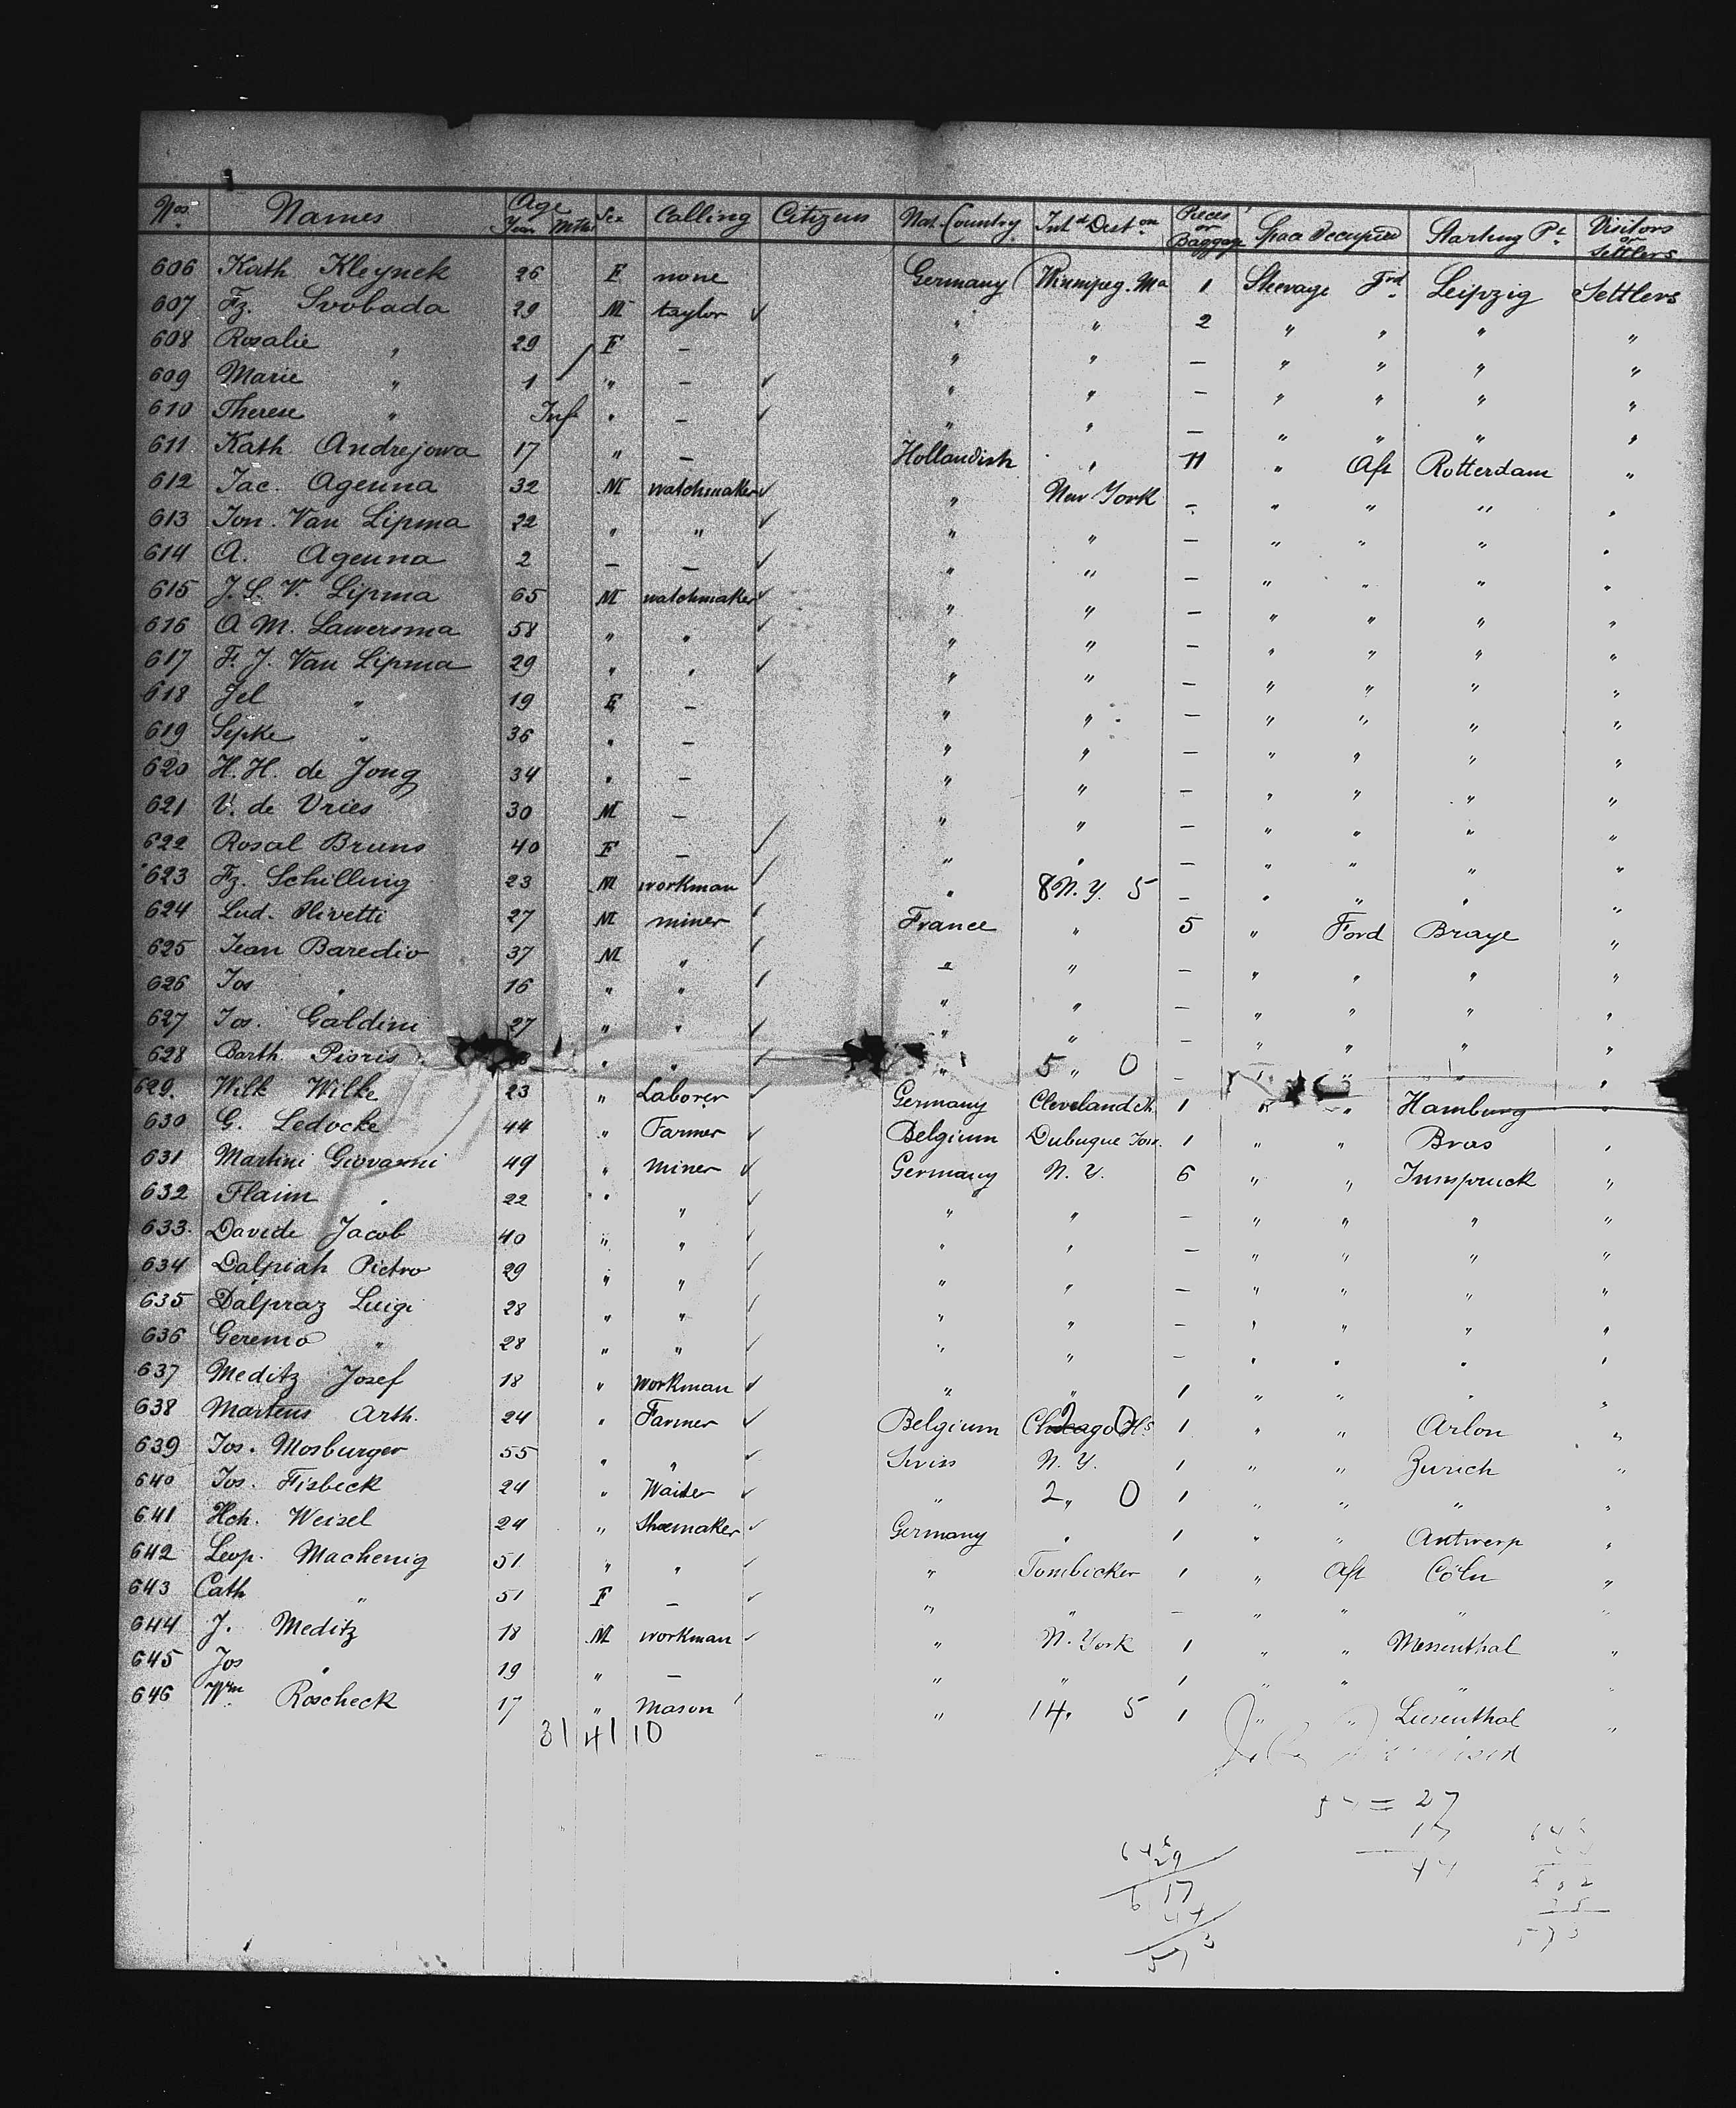 Nos. Names Age Year Mths Sex Calling Citizen Nat. Country Intd Deston Pieces or Baggage Space Occupied Starting Pt. Visitors or Settlers
606 Kath. Kleynek 26 F none Germany Winnipeg. Ma 1 Steerage Frd Leipzig Settlers
607 Fz. Svobada 29 M taylor ✓ " " 2 " " " "
608 Rosalie " 29 F — " " — " " " "
609 Marie " 1 " — ✓ " " — " " " "
610 Therese " Inf " — ✓ " " — " " " "
611 Kath Andrejowa 17 " — Hollandish " 11 " Aft Rotterdam "
612 Jac. Agenna 32 M watchmaker ✓ " New York — " " " "
613 Jon. Van Lipma 22 " " ✓ " " — " " " "
614 A. Agenna 2 — — ✓ " " — " " " "
615 J. S. V. Lipma 65 M watchmaker ✓ " " — " " " "
616 A M. Lawersma 58 " " ✓ " " — " " " "
617 F. J. Van Lipma 29 " " ✓ " " — " " " "
618 Jel " 19 F — " " — " " " "
619 Sepke " 36 " — " " — " " " "
620 H. H. de Jong 34 " — " " — " " " "
621 V. de Vries 30 M — " " — " " " "
622 Rosal Bruns 40 F — ✓ " " — " " " "
623 Fz. Schilling 23 M workman ✓ " 8 N. Y. 5 — " " " "
624 Lud. Olivetti 27 M miner ✓ France " 5 " Ford Braye "
625 Jean Baredio 37 M " ✓ " " — " " " "
626 Jos " 16 " " ✓ " " — " " " "
627 Jos. Galdini 27 " " ✓ " " — " " " "
628 Barth. Pioris " " ✓ " 5 " 0 — " " " "
629. Wilk Wilke 23 " Laborer ✓ Germany Cleveland 1 " " Hamburg "
630 G. Ledocke 44 " Farmer ✓ Belgium Dubuque Iow. 1 " " Bras "
631 Martini Giovanni 49 " miner ✓ Germany N. Y. 6 " " Innspruck "
632 Flaim " 22 " " ✓ " " — " " " "
633. Davide Jacob 40 " " ✓ " " — " " " "
634 Dalpiah Pietro 29 " " ✓ " " — " " " "
635 Dalpraz Luigi 28 " " ✓ " " — " " " "
636 Geremo " 28 " " ✓ " " — " " " "
637 Meditz Josef 18 " workman ✓ " " 1 " " " "
638 Martens Arth. 24 " Farmer ✓ Belgium Chicago Ils 2 0 1 " " Arlon "
639 Jos. Mosburger 55 " " ✓ Swiss N. Y. 1 " " Zurich "
640 Jos. Fisbeck 24 " Waiter ✓ " 2 " 0 1 " " " "
641 Hch. Weisel 24 " Shoemaker ✓ Germany " 1 " " Antwerp "
642 Leop. Machenig 51 " " ✓ " Tombicker 1 " Aft Cöln "
643 Cath " 51 F — ✓ " " — " " " "
644 J. Meditz 18 M workman ✓ " N. York 1 " " Messenthal "
645 Jos " 19 " — " " 1 " " " "
646 Wm Roscheck 17 " Mason " 14 " 5 1 " " Liesenthal "
31 41 10
= 27
29
617
44
573